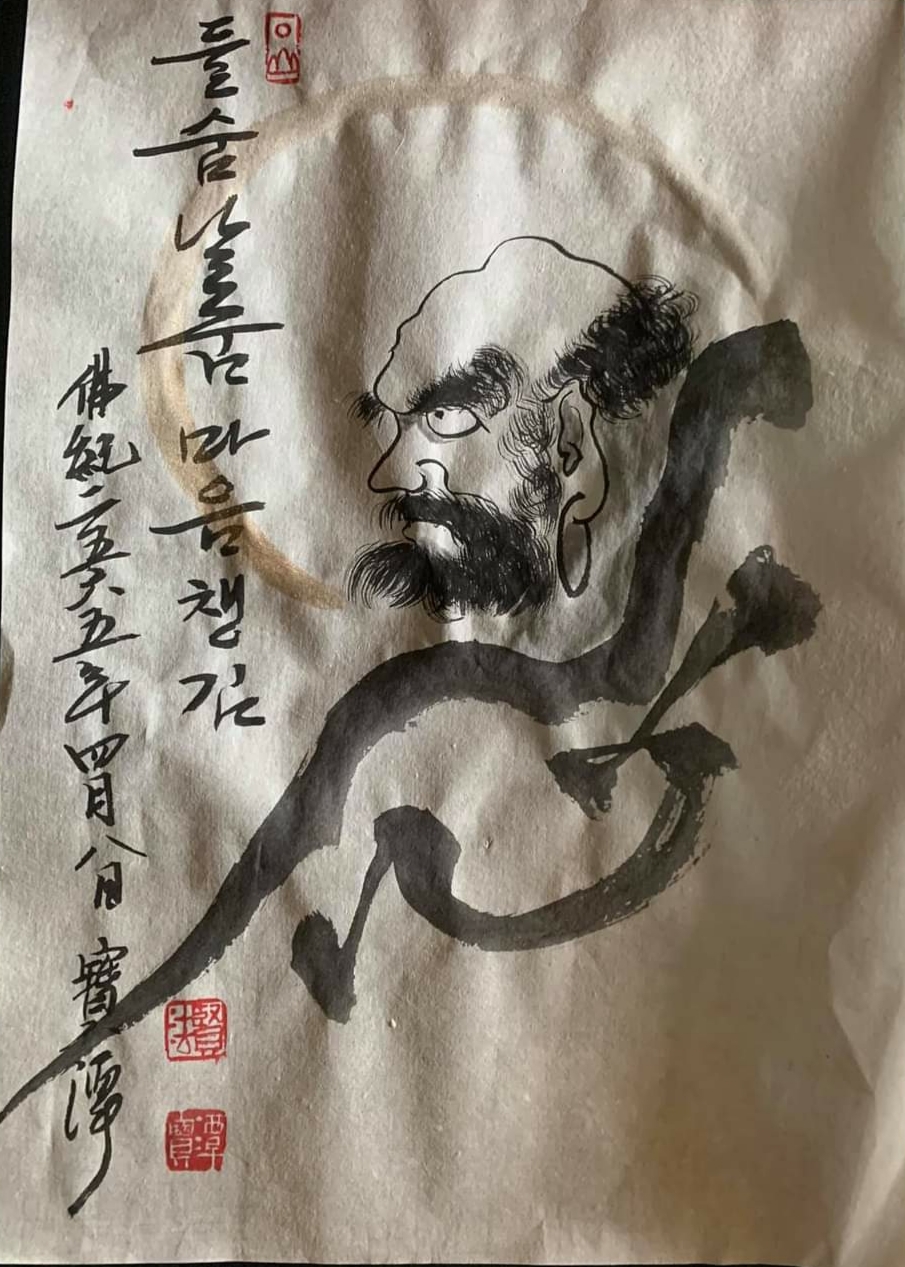 心
들숨 날숨 마음챙김
佛紀二五六五年四月八日 寶潭